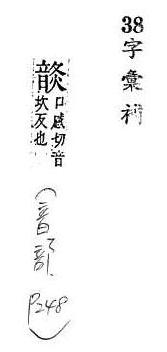 38字彙補
口感切音
坎反也
(音部 P248)